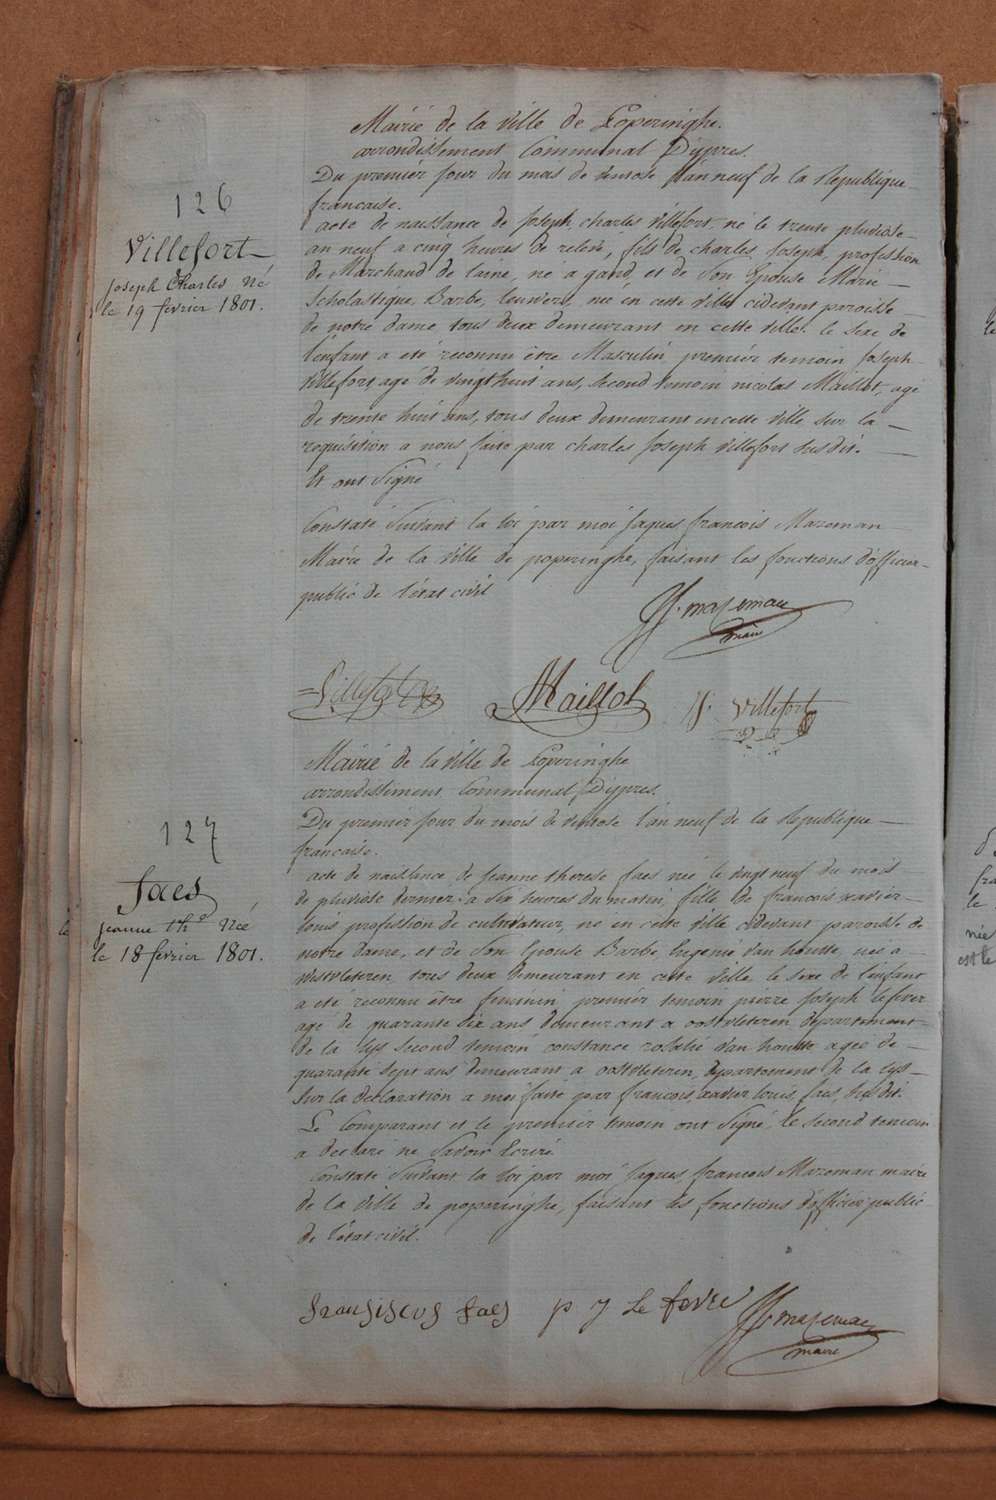 Mairie de la ville de Poperinghe.
arrondissement Communal D'ypres.
Du premier jour du mois de ventose l'an neuf de la Republique
francaise.
126
Villefort
Joseph Charles Né
le 19 fevrier 1801.
acte de naissance de Joseph charles villefort né le trente pluviose
an neuf a cinq heures de relevé, fils de charles Joseph, profession
de Marchand de laine, né a gand et de Son Epouse Marie
Scholastique Barbe, née en cette ville cidevant paroisse
de notre dame tous deux demeurant en cette ville. le sexe de
l'enfant a eté reconnu être Masculin premier temoin Joseph
villefort agé de vingt huit ans, Second temoin nicolas Maillot, agé
de trente huit ans, tous deux demeurant en cette ville Sur la
requisition a nous faite par charles Joseph villefort Susdit.
Et ont Signé
Constaté Suivant la loi par moi Jaques francois Mazeman
Maire de la ville de poperinghe, faisant les fonctions d'officier
public de l'état civil
JJ. mazeman
maire
Villefort
Maillot
JJ. villefort
Mairie de la ville de Poperinghe
arrondissement Communal D'ypres.
Du premier Jour du mois de ventose l'an neuf de la Republique
francaise.
127
Faes
Jeanne thé Née
le 18 fevrier 1801.
acte de naissance de Jeanne therese faes née le vingt neuf du mois
de pluviôse dernier a Six heures du matin, fille de francois xavier
louis profession de cultivateur, né en cette ville cidevant paroisse de
notre dame, et de Son Epouse Barbe Eugenie van houtte, née a
westvleteren tous deux demeurant en cette ville le sexe de l'enfant
a eté reconnu être feminin premier temoin pierre Joseph lefever
agé de quarante Six ans demeurant a oostvleteren departement
de la Lys Second temoin constance rosalie van houtte agée de
quarante Sept ans demeurant a oostvleteren, departement de la Lys
Sur la declaration a moi faite par francois xavier louis faes, Susdit.
Le Comparant et le premier temoin ont Signé, le Second temoin
a declaré ne Savoir Ecrire
Constaté Suivant la loi par moi Jaques francois Mazeman maire
de la ville de poperinghe, faisant les fonctions d'officier public
de l'état civil.
fransiscus faes
p J Le fevre
JJ. mazeman
maire